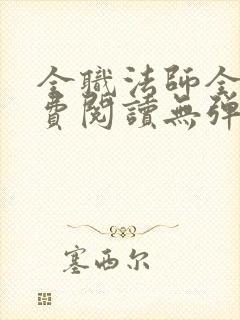 全職法師全
費閱讀無彈
塞西尔